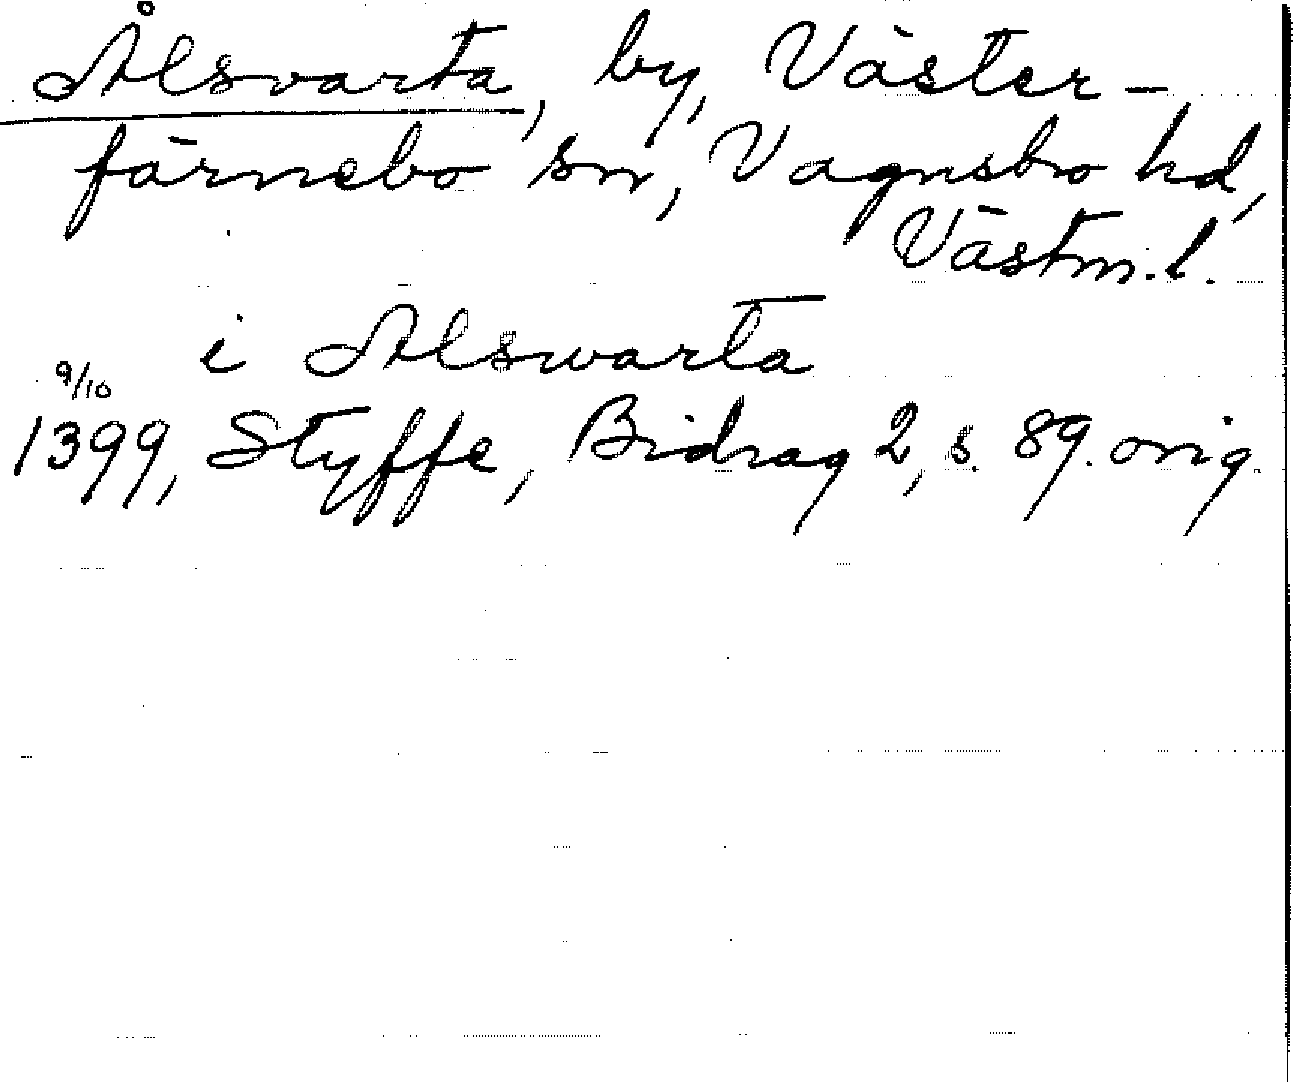 Ålsvarta, by, Väster-
färnebo sn, Vagnsbro hd,
Västm.l.
i Alswarta
9/10
1399, Styffe, Bidrag 2, s. 89. orig.